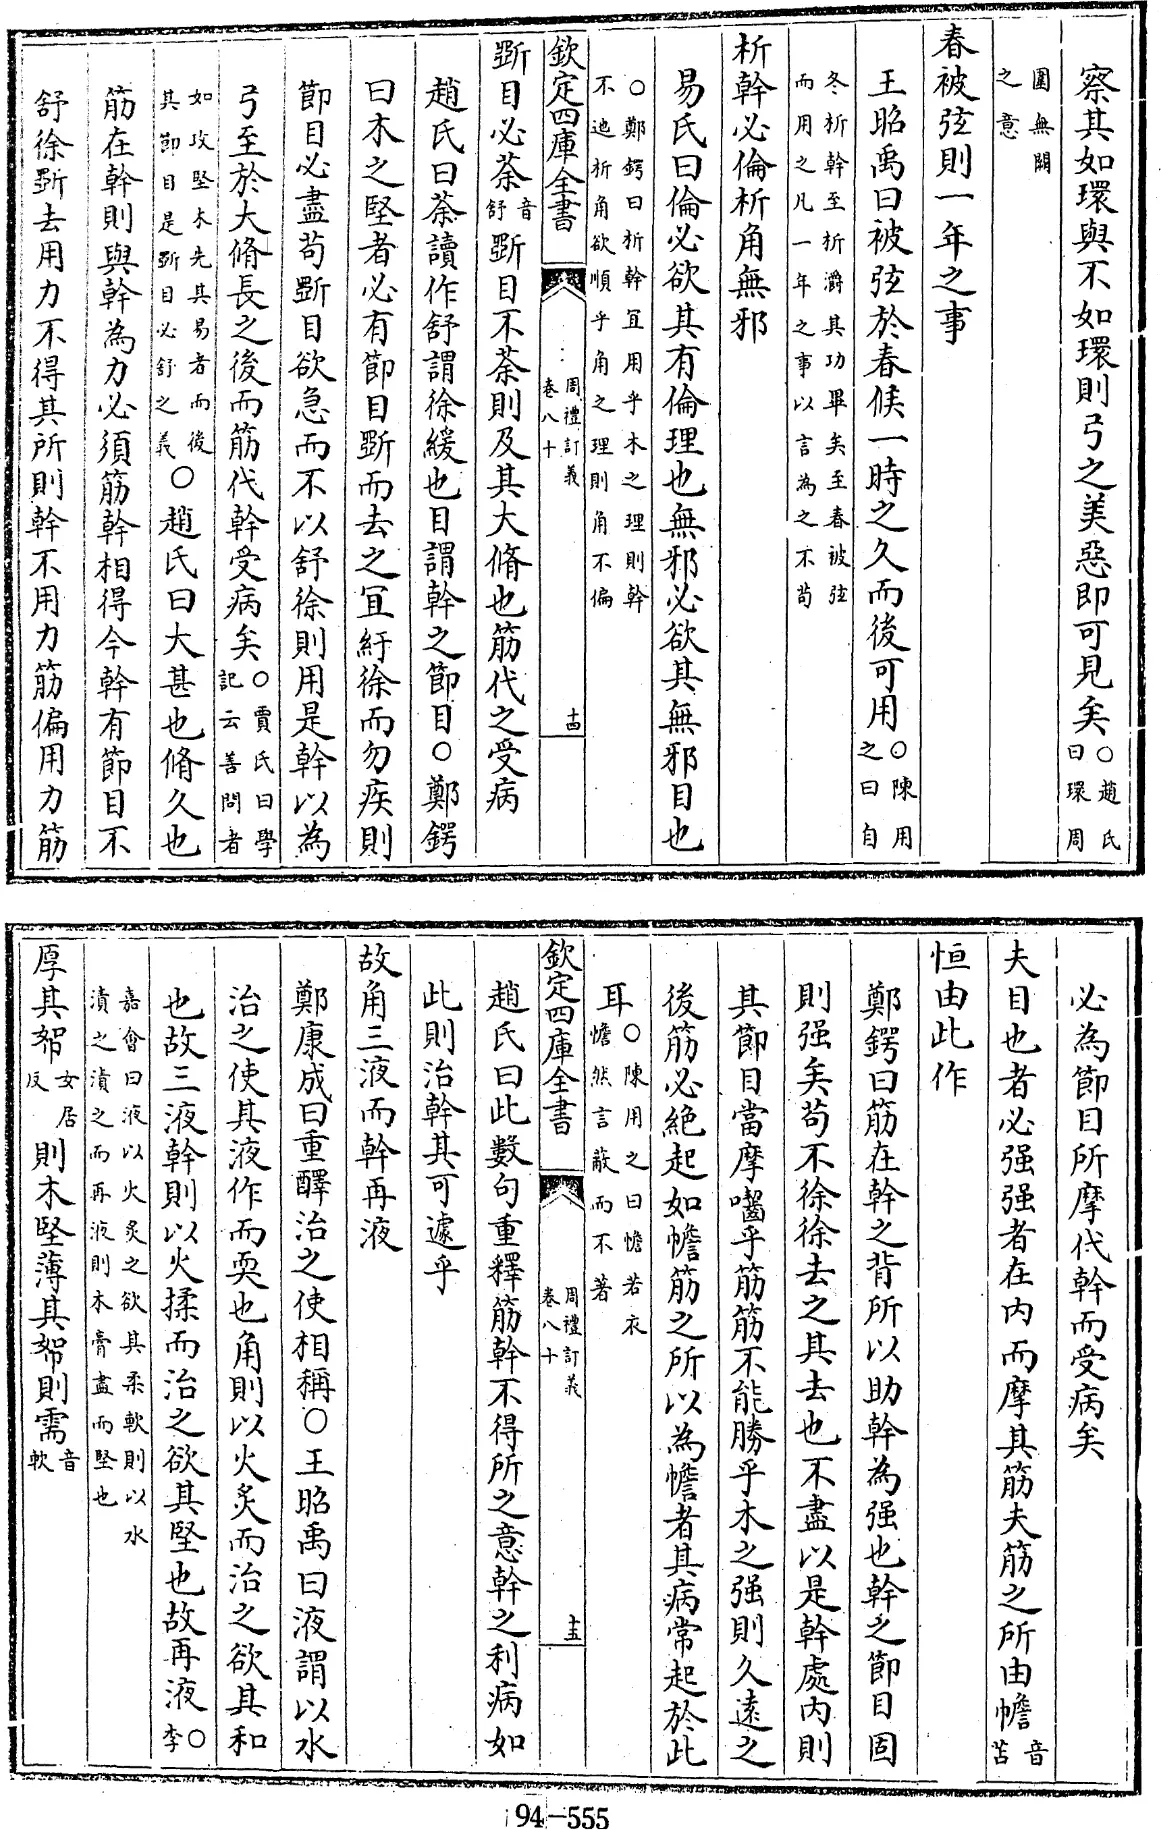 察其如環與不如環則弓之美惡即可見矣○趙氏曰環周
圍無闗之意
春被弦則一年之事
王昭禹曰被弦於春候一時之久而後可用○陳用之曰自
冬析幹至析灂其功畢矣至春被弦而用之凡一年之事以言為之不茍
析幹必倫析角無邪
易氏曰倫必欲其有倫理也無邪必欲其無邪目也
○鄭鍔曰析幹宜用乎木之理則幹不迆析角欲順乎角之理則角不偏
欽定四庫全書 周禮訂義卷八十 十四
斲目必荼音舒斲目不荼則及其大脩也筋代之受病
趙氏曰荼讀作舒謂徐緩也目謂幹之節目○鄭鍔
曰木之堅者必有節目斲而去之宜紓徐而勿疾則
節目必盡茍斲目欲急而不以舒徐則用是幹以為
弓至於大脩長之後而筋代幹受病矣○賈氏曰學記云善問者
如攻堅木先其易者而後其節目是斲目必舒之義○趙氏曰大甚也脩久也
筋在幹則與幹為力必須筋幹相得今幹有節目不
舒徐斲去用力不得其所則幹不用力筋偏用力筋
必為節目所摩代幹而受病矣
夫目也者必强强者在内而摩其筋夫筋之所由幨音苫
恒由此作
鄭鍔曰筋在幹之背所以助幹為强也幹之節目固
則强矣茍不徐徐去之其去也不盡以是幹處内則
其節目當摩囓乎筋筋不能勝乎木之强則久遠之
後筋必絶起如幨筋之所以為幨者其病常起於此
耳○陳用之曰幨若衣幨然言蔽而不著
欽定四庫全書 周禮訂義卷八十 十五
趙氏曰此數句重釋筋幹不得所之意幹之利病如
此則治幹其可遽乎
故角三液而幹再液
鄭康成曰重醳治之使相稱○王昭禹曰液謂以水
治之使其液作而耎也角則以火炙而治之欲其和
也故三液幹則以火揉而治之欲其堅也故再液○李
嘉會曰液以火炙之欲其柔軟則以水漬之漬之而再液則木膏盡而堅也
厚其帤女居反則木堅薄其帤則需音軟
94-555